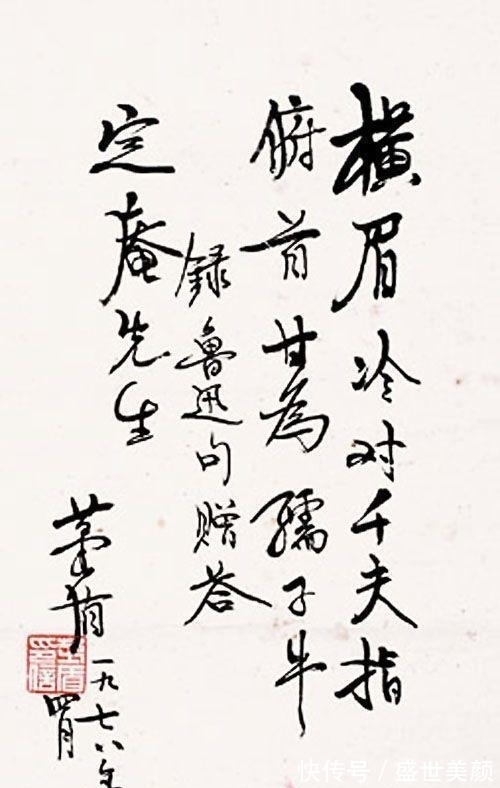 横眉冷对千夫指
俯首甘為孺子牛
録魯迅句赠荅
定庵先生
茅盾一九七八年
四月
茅盾印信
快传号 / 盛世美颜